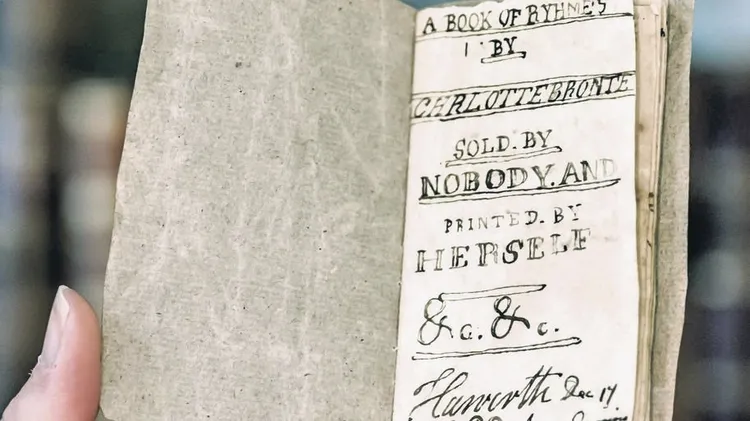 A BOOK OF RYHMES
BY
CHARLOTTE BRONTE
SOLD. BY
NOBODY. AND
PRINTED. BY
HERSELF
&c. &c.
Haworth Dec 17